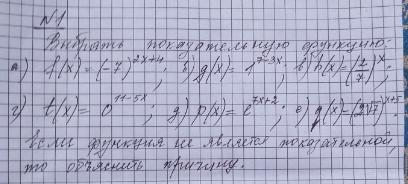 №1
Выбрать показательную функцию:
а) f(x) = (-7)^{2x+4}; б) g(x) = 1^{7-3x}; в) h(x) = (2/7)^x;
г) t(x) = 0^{11-5x}; д) p(x) = e^{7x+2}; е) q(x) = (2√7)^{x+5}.
Если функция не является показательной,
то объяснить причину.